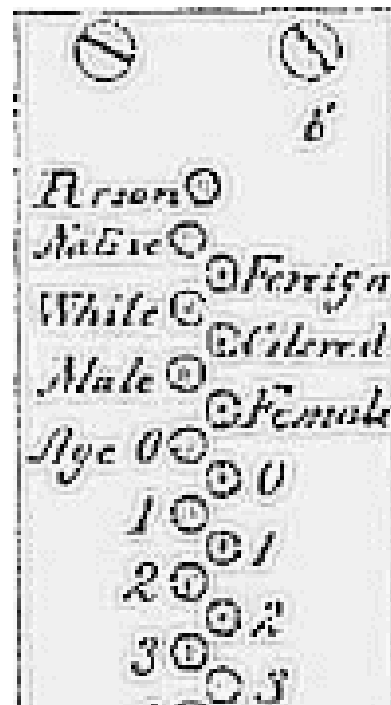 6
Person
Native
Foreign
White
Colored
Male
Female
Age 0
0
1
1
2
2
3
3